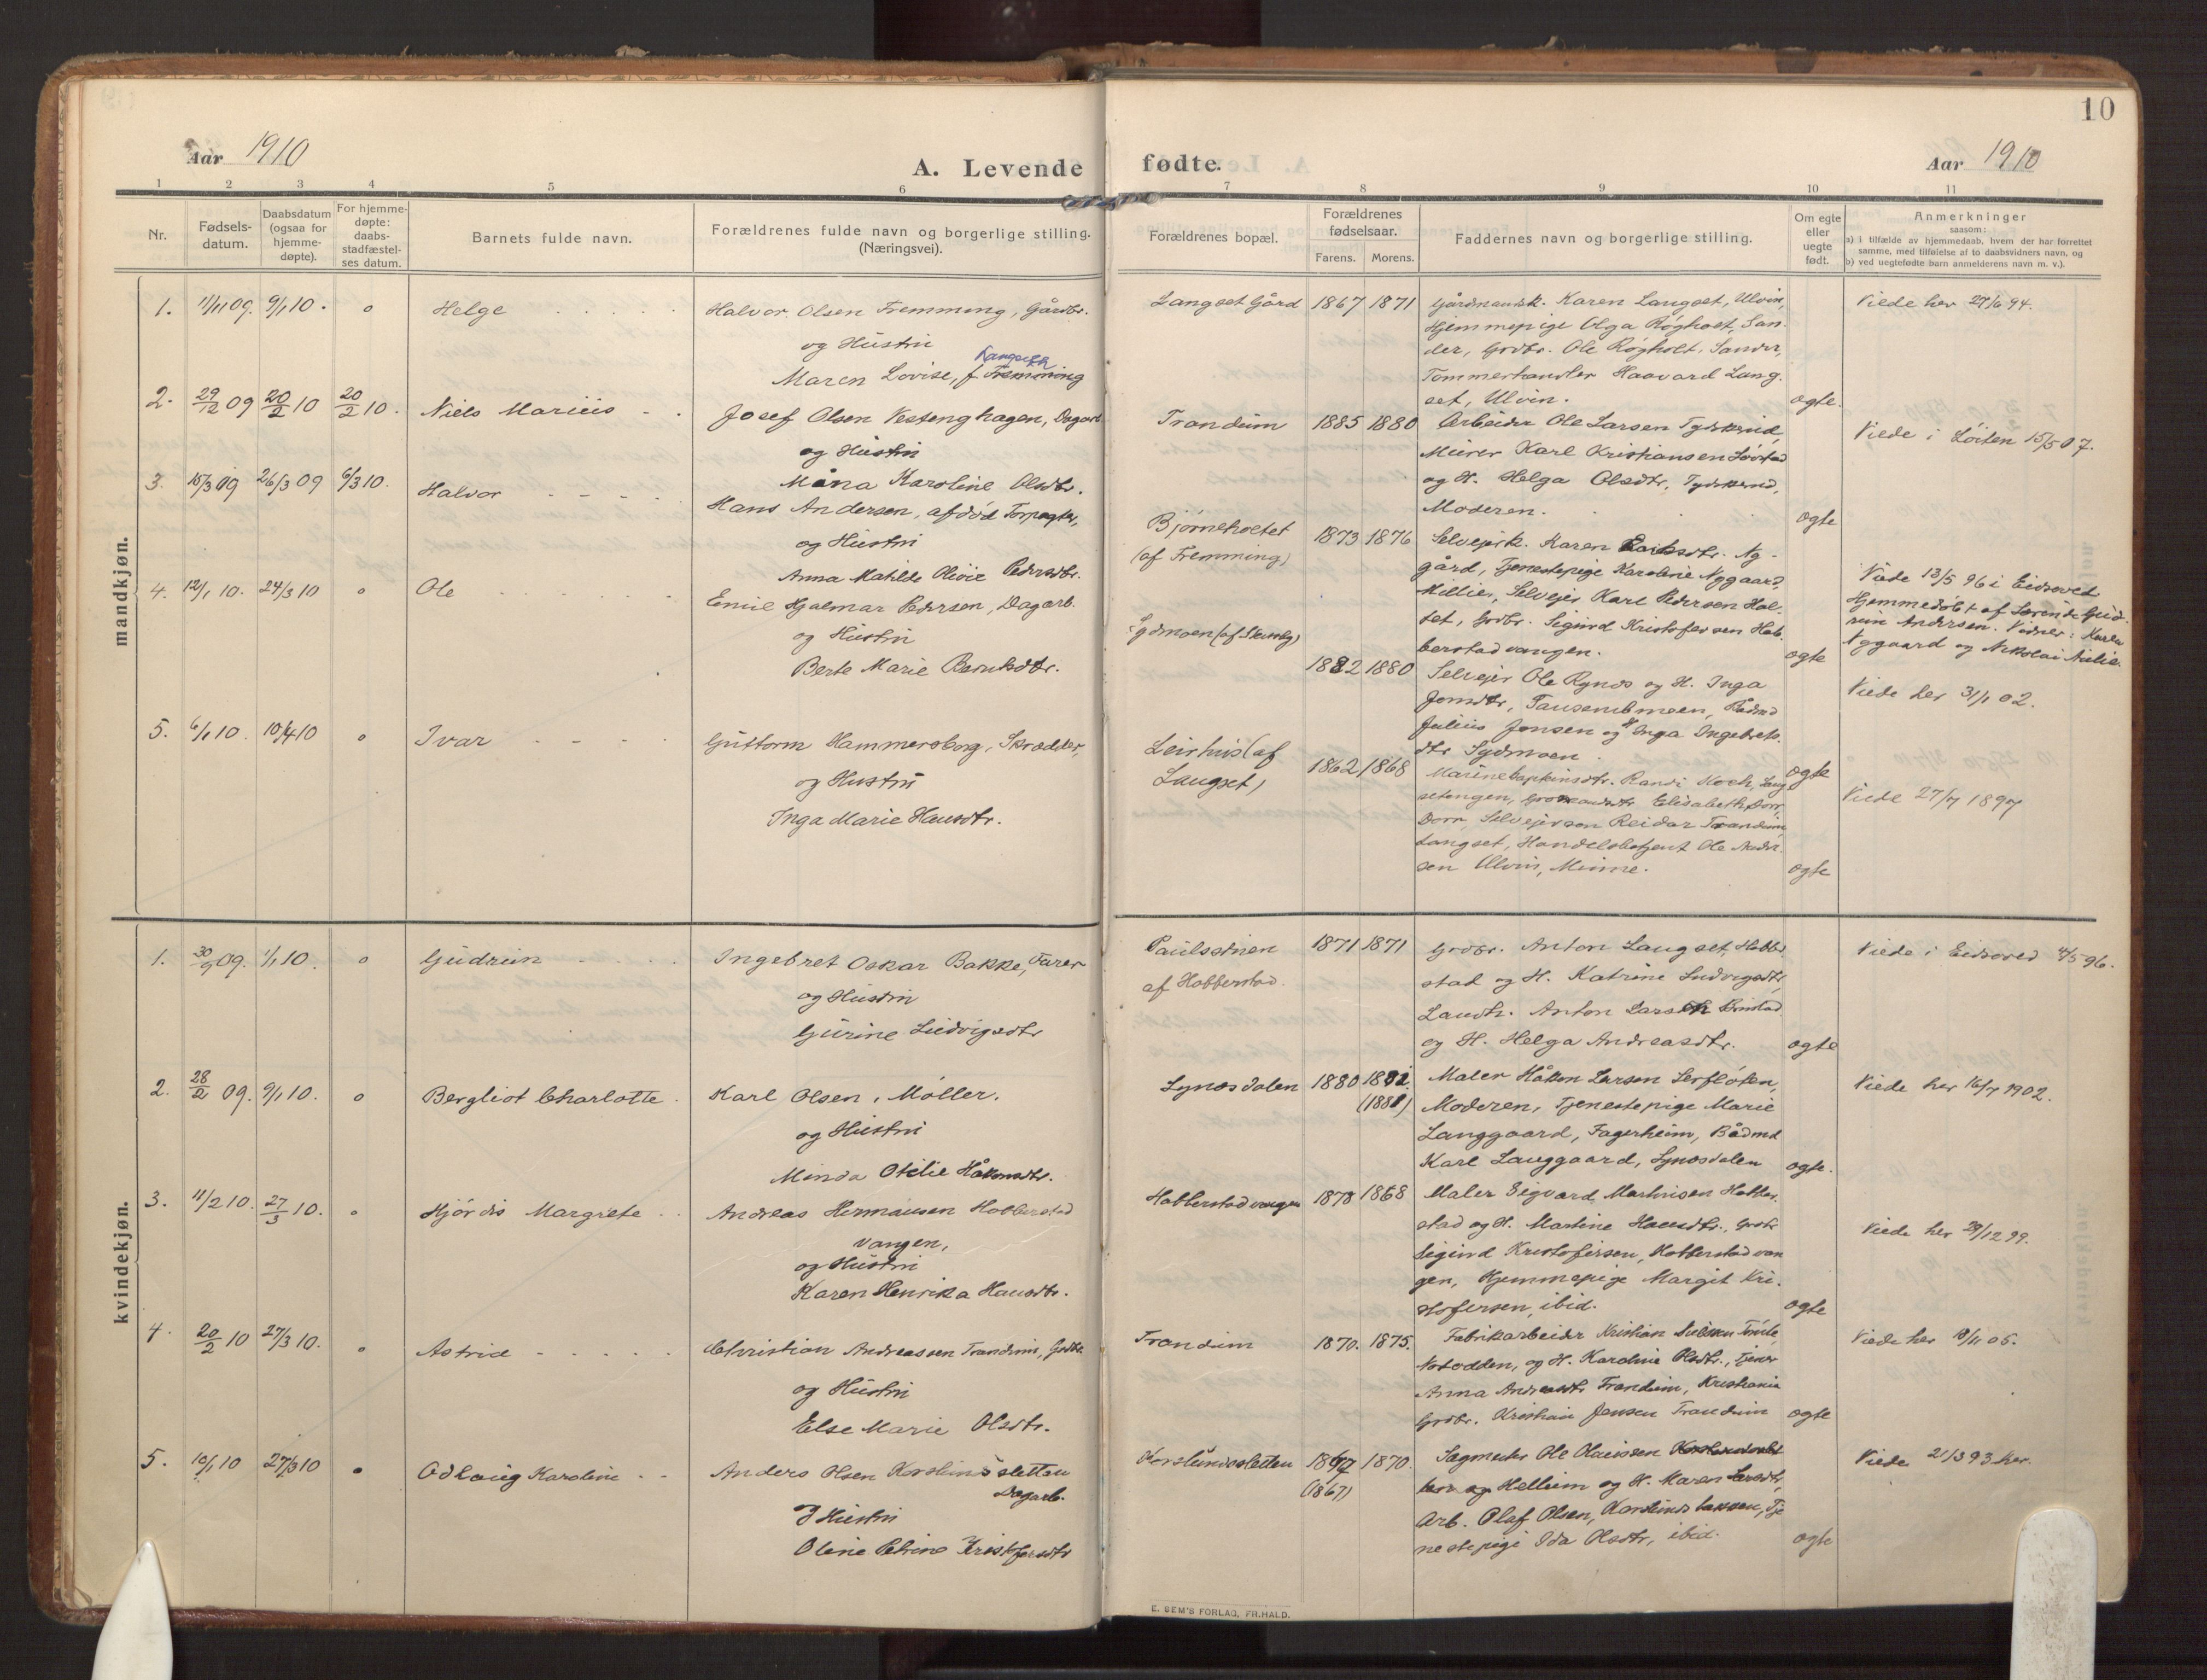 10
Aar 1910
A. Levende fødte.
Aar 1910
1 2 3 4 5 6 7 8 9 10 11
Nr.
Fødsels-
datum.
Daabsdatum
(ogsaa for
hjemme-
døpte).
For hjemme-
døpte:
daabs-
stadfæstel-
ses datum.
Barnets fulde navn.
Forældrenes fulde navn og borgerlige stilling.
(Næringsvei).
Forældrenes bopæl.
Forældrenes
fødselsaar.
Farens. Morens.
Faddernes navn og borgerlige stilling.
Om egte
eller
uegte
født.
Anmerkninger
saasom:
a) i tilfælde av hjemmedaab, hvem der har forrettet
samme, med tilføielse af to daabsvidners navn, og
b) ved uegtefødte barn anmelderens navn m. v.).
mandkjøn.
1. 11/11 09. 9/1 10. o Helge
Halvor Olsen Fremming, Gårdbr.
og Hustru
Langseth
Maren Lovise, f. Fremming
Langset Gård 1867 1871
Gårdmandsk. Karen Langset, Ulvin,
Hjemmepige Olga Røgholt, San-
der, Grdbr. Ole Røgholt, Sander,
Tømmerhandler Haavard Lang-
set, Ulvin.
ægte.
Viede her 27/6 94.
2. 29/12 09 20/2 10 20/2 10. Niels Marius
Josef Olsen Vestenghagen, Dagarb.
og Hustru
Måna Karoline Olsdtr.
Trandum 1885 1880
Arbeider Ole Larsen Tydskerud,
Murer Karl Kristiansen Løvstad
og H. Helga Olsdtr, Tydskerud,
Moderen.
ægte
Viede i Løiten 15/5 07.
3. 15/3 09 26/3 09 6/3 10. Halvor
Hans Andersen, afdød Torpagter,
og Hustru
Anna Matilde Olivie Pedersdtr.
Bjørneholtet
(af Fremming)
1873 1876
Selveierk. Karen Larsdtr. Ny-
gård, Tjenestepige Karoline Nygaard,
Millier, Selveier Karl Pedersen Hol-
tet, Grdbr. Sigurd Kristofersen Hob-
berstadvangen.
ægte
Viede 13/5 96 i Eidsvold
Hjemmedøbt af Lærerinde Gud-
run Andersen. Vidner: Karen
Nygaard og Nikolai Milie.
4. 12/1 10. 24/3 10 o Ole
Emil Hjalmar Pedersen, Dagarb.
og Hustru
Berte Marie Berntsdtr.
Sydmoen
1882 1880
Selveier Ole Rynæs og H. Inga
Jonsdtr, Tausembmoen, Bådmd
Julius Jonsen og H. Inga Ingebrets-
dtr Sydmoen.
ægte
Viede her 31/1 02.
5. 6/1 10. 10/4 10 o Ivar
Guttorm Hammersborg, Skrædder,
og Hustru
Inga Marie Hansdtr.
Leirhus (af
Langset)
1862 1868
Marinekapteinsdtr. Randi Koch, Lang-
setengen, Elisabeth Dorr,
Dorr, Selveiersøn Reidar Trandum,
Langset, Handelsbetjent Ole Peder-
sen Ulvin, Minne.
ægte
Viede 27/7 1897
kvindekjøn.
1. 30/9 09. 1/1 10. o Gudrun
Ingebret Oskar Bakke, Furer
og Hustru
Gurine Ludvigsdtr
Paulsstuen
af Hobberstad.
1871 1871
Grdbr. Anton Langset, Hobber-
stad og H. Katrine Ludvigsdtr,
Landh. Anton Larsen
og H. Helga Andreasdtr.
ægte
Viede i Eidsvold 4/5 96.
2. 28/2 09. 9/1 10. o Bergliot Charlotte
Karl Olsen, Møller.
og Hustru
Minda Otilie Håkonsdtr.
Lynæsdalen 1880 1881.
(1881)
Maler Håkon Larsen Lerfløten,
Moderen, Tjenestepige Marie
Langgaard, Fagerheim, Bådmd
Karl Langgaard, Lynæsdalen
ægte.
Viede her 16/7 1902.
3. 11/2 10. 27/3 10. o Hjørdis Margrete
Andreas Hermansen Hobberstad
vangen,
og Hustru
Karen Henrika Hansdtr.
Hobberstadvangen 1878 1868
Maler Sigvard Martinsen Hobber-
stad og H. Martine Hansdtr., Grdbr
Sigurd Kristofersen, Hobberstadvan
gen, Hjemmepige Margit Kri-
stofersen, ibid.
ægte
Viede her 29/12 99.
4. 20/2 10 27/3 10. o Astrid
Christian Andreassen Trandum, Grdbr.
og Hustru
Else Marie Olsdtr.
Trandum 1870. 1875.
Fabrikarbeider Kristian
Notodden, og H. Karoline Olsdtr.,
Anna Andreasdtr Trandum, Kristiania
Grdbr. Kristian Jensen Trandum
ægte
Viede her 18/11 05.
5. 10/1 10 27/3 10 o Odlaug Karoline
Anders Olsen Korslundsletten
Dagarb.
og Hustru
Oline Petrine Kristofersdtr
Korslundsletten 1867 1870.
(1867)
Sagmester Ole Olaussen
Hellum og H. Maren Larsdtr,
Arb. Olaf Olsen, Korslundsbakken, Tje
nestepige Ida Olsdtr, ibid.
ægte
Viede 21/3 93 her.
E. SEM'S FORLAG, FR.HALD.